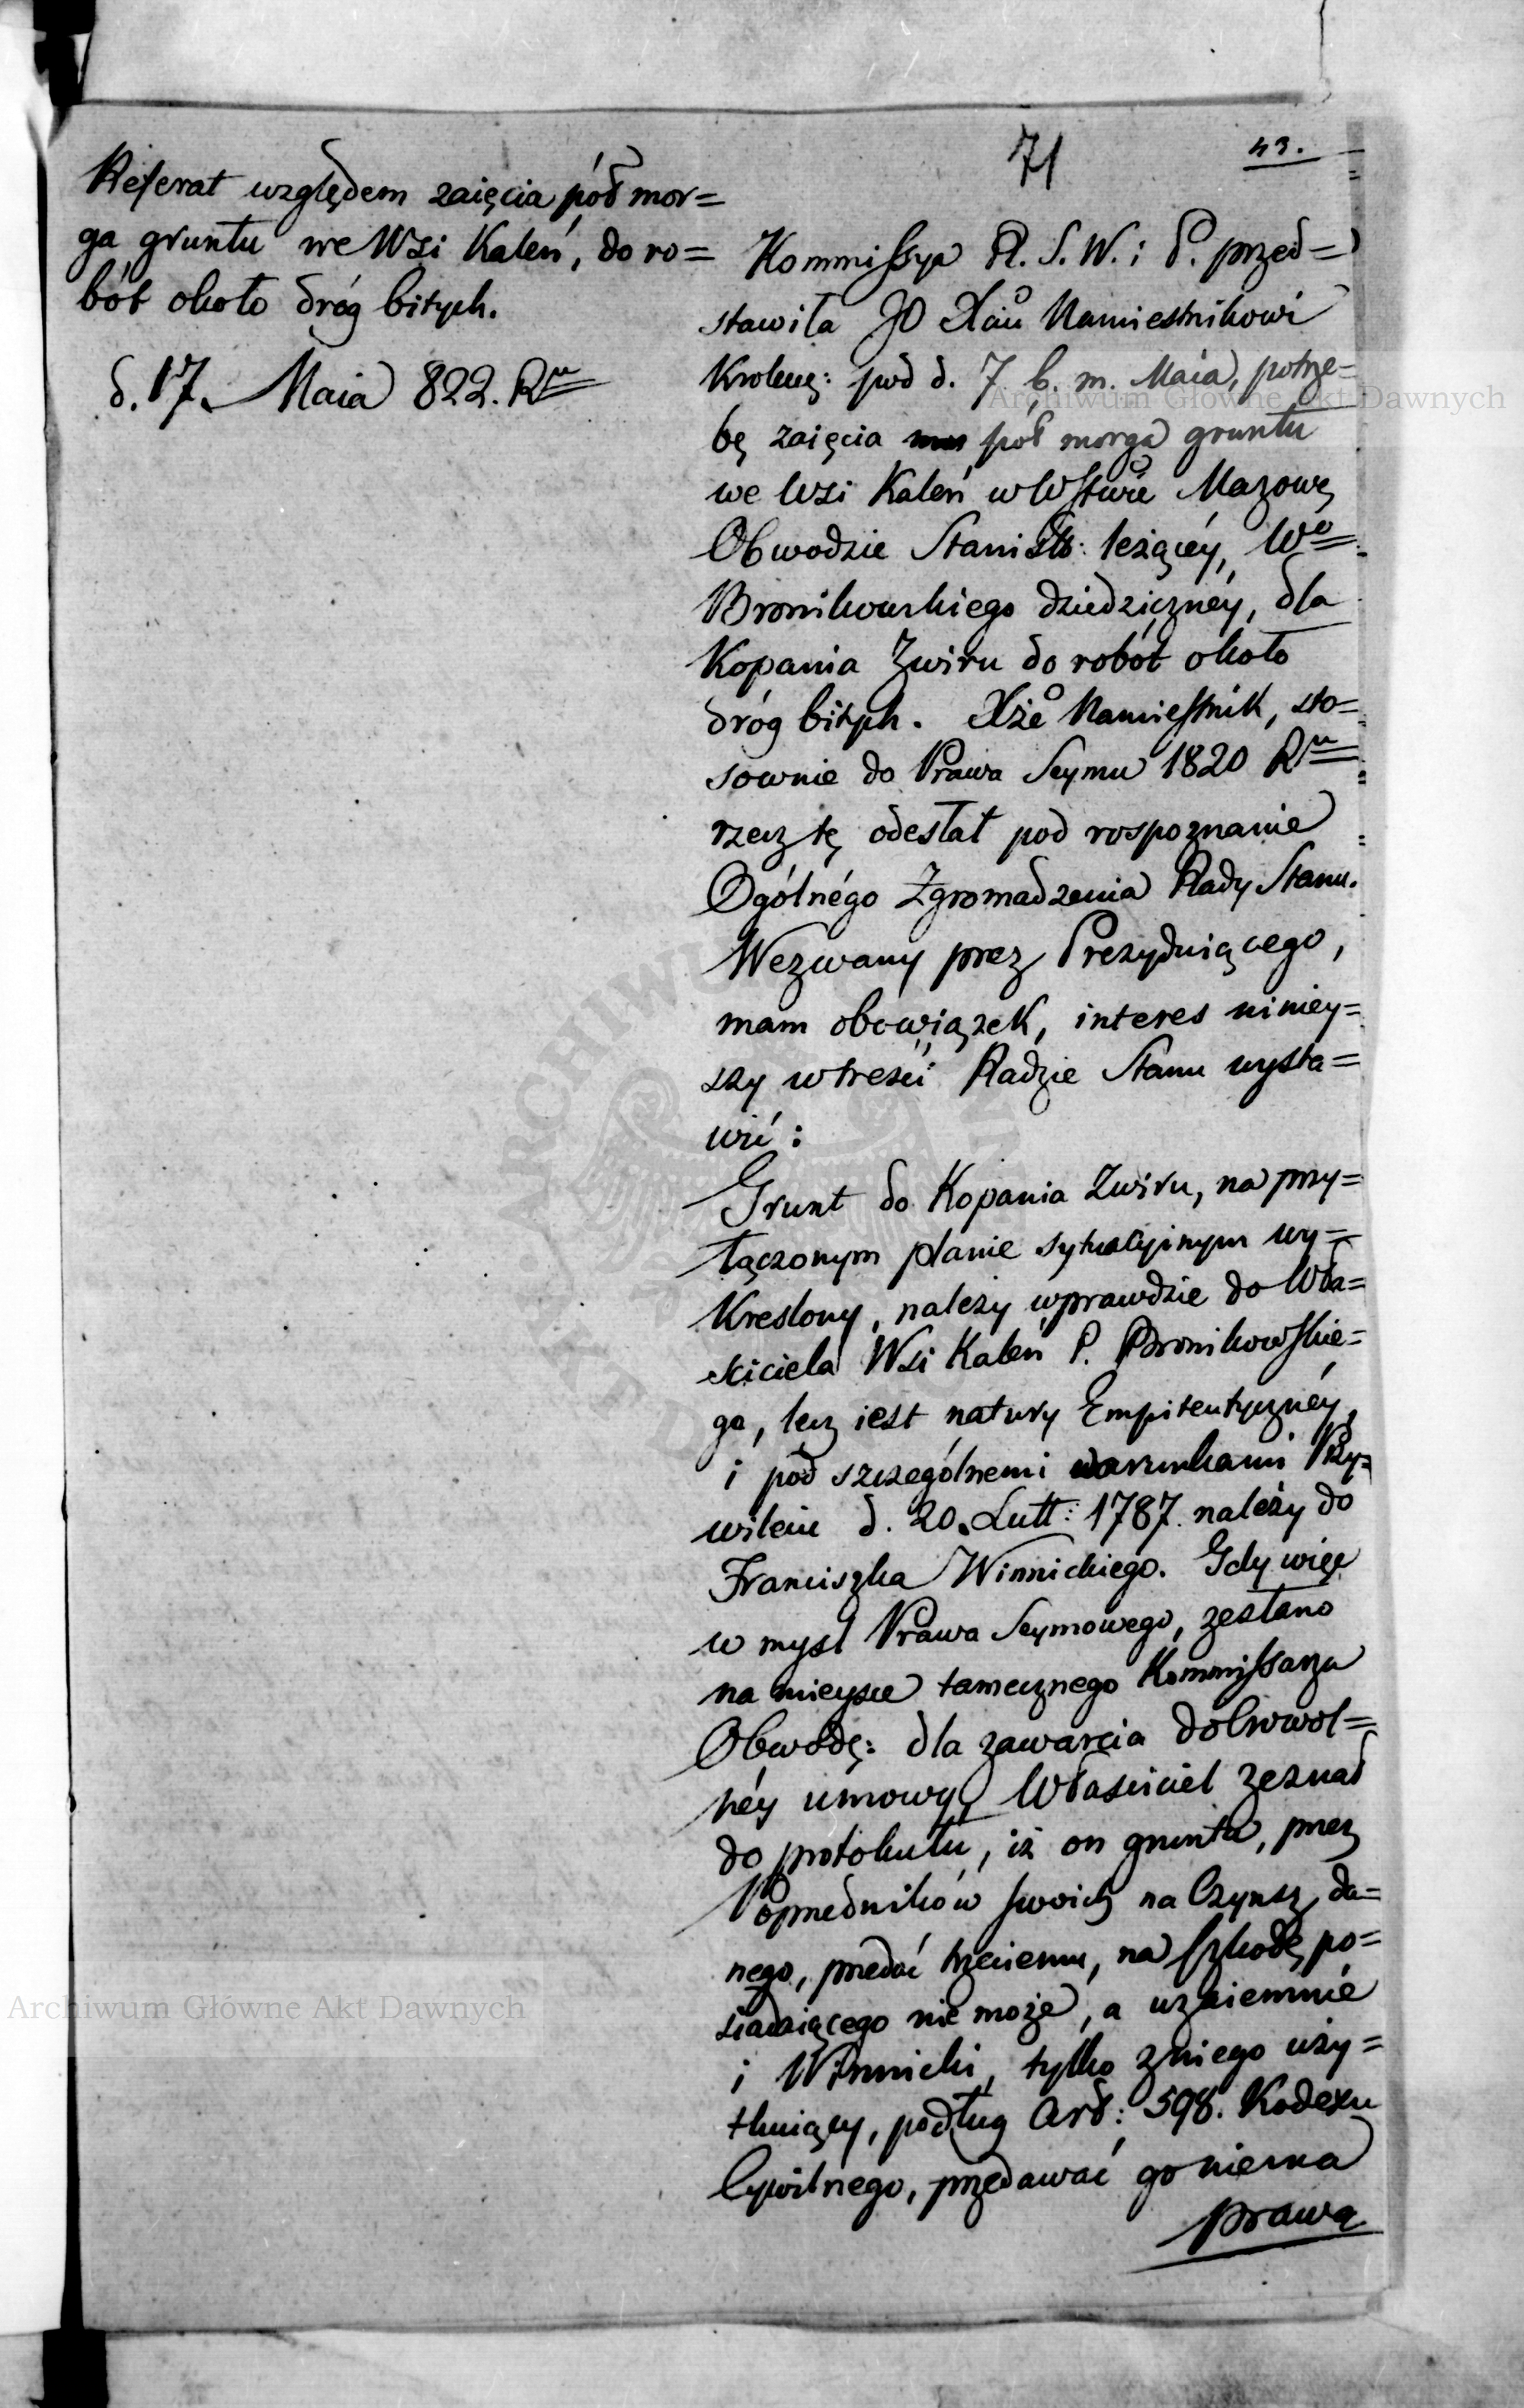 71
43.
Referat względem zaięcia pół mor=
ga gruntu we Wsi Kaleń, do ro=
bót około dróg bitych.
d. 17. Maia 822. Ru
Kommissya R. S. W. i P. przed=
stawiła JO Xciu Namiestnikowi
Krolew: pod d. 7 b. m. Maia, potrze=
bę zaięcia pół morga gruntu
we Wsi Kaleń w Wstwie Mazow:
Obwodzie Stanisł: leżącéy, Wo
Bronikowskiego dziedzicznéy, dla
Kopania Zwiru do robót około
dróg bitych. Xże Namiestnik, sto=
sownie do Prawa Seymu 1820 Ru
rzecz tę odesłał pod rospoznanie
Ogólnégo Zgromadzenia Rady Stanu.
Wezwany przez Prezyduiącego,
mam obowiązek, interes niniey=
szy w treści Radzie Stanu wysta=
wić:
Grunt do Kopania Zwiru, na przy=
łączonym planie sytuacyinym wy=
Kreslony, należy wprawdzie do Wła=
sciciela Wsi Kaleń P. Bronikowskie=
go, lecz iest natury Empiteutycznéy,
i pod szczególnemi warunkami Przy=
wileiu d. 20. Lutt: 1787. należy do
Franciszka Winnickiego. Gdy więc
w mysl Prawa Seymowego, zesłano
na mieysce tamecznego Kommissarza
Obwodę: dla zawarcia dobrowol=
néy umowy, Właściciel zeznał
do protokułu, iż on grunta, przez
Poprzedników swoich na Czynsz da=
nego, przedać trzeciemu, na szkodę po=
siadaiącego nie może, a wzaiemnie
i Winnicki, tylko z niego uży=
tkuiący, podług Art: 598. Kodexu
Cywilnego, przedawać go niema
prawa
Archiwum Główne Akt Dawnych
Archiwum Główne Akt Dawnych